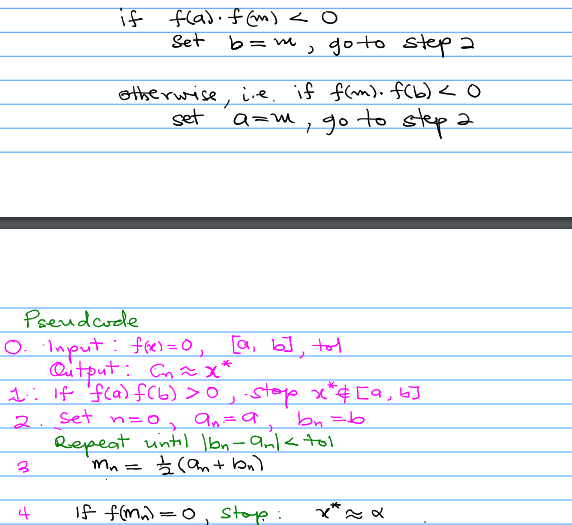 if f(a).f(m) < 0
set b = m, go to step 2
otherwise, i.e. if f(m).f(b) < 0
set a=m, go to step 2
Pseudcode
0. Input: f(x)=0, [a, b], tol
Output: Cn ≈ x*
1.: If f(a) f(b) > 0, stop x* ∉ [a, b]
2. Set n=0, an=a, bn=b
Repeat until |bn-an| < tol
3 mn = 1/2 (an + bn)
4 If f(mn) = 0, stop: x* ≈ α